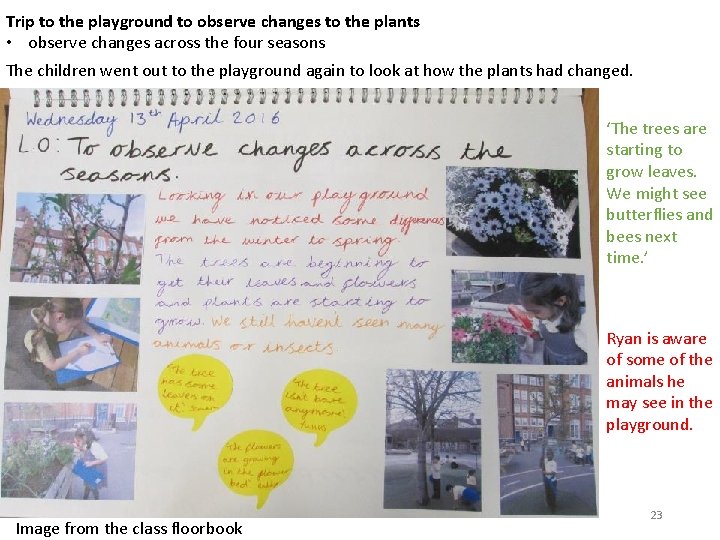 Trip to the playground to observe changes to the plants
• observe changes across the four seasons
The children went out to the playground again to look at how the plants had changed.
Wednesday 13th April 2016
L.O: To observe changes across the
seasons.
Looking in our playground
we have noticed some differences
from the winter to spring.
The trees are beginning to
get their leaves and flowers
and plants are starting to
grow. We still havent seen many
animals or insects.
The tree
has some
leaves on
it!
The tree
isn't bare
anymore!
The flowers
are growing
in the flower
bed
‘The trees are
starting to
grow leaves.
We might see
butterflies and
bees next
time.’
Ryan is aware
of some of the
animals he
may see in the
playground.
Image from the class floorbook
23